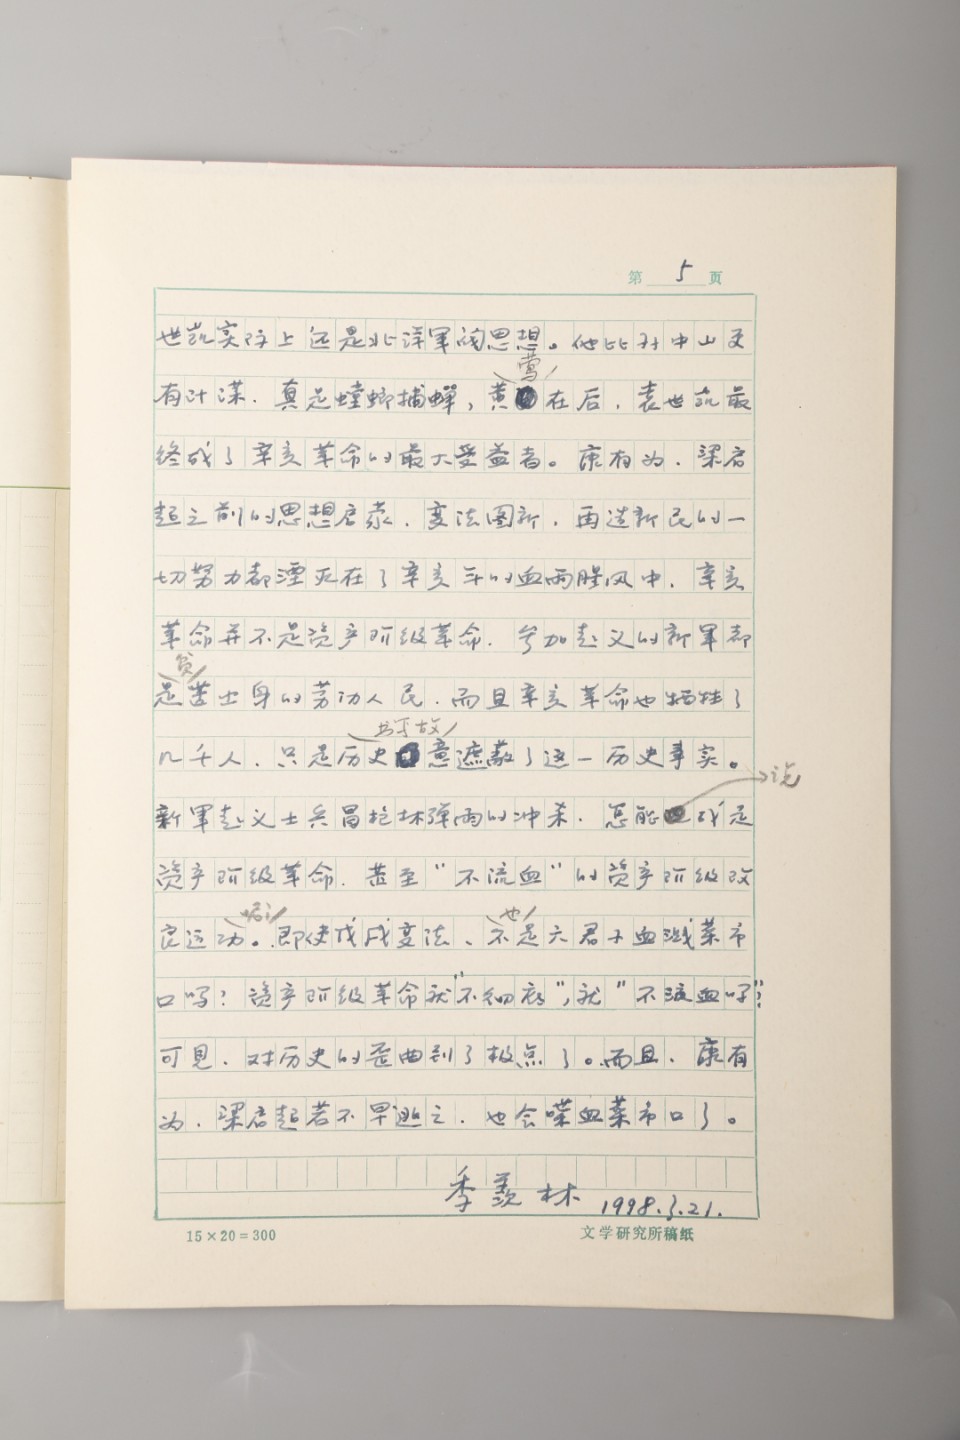 第 5 页
世凯实际上还是北洋军阀思想。他比孙中山更
莺
有计谋。真是螳螂捕蝉，黄在后，袁世凯最
终成了辛亥革命的最大受益者。康有为、梁启
超之前的思想启蒙、变法图新、再造新民的一
切努力都湮灭在了辛亥年的血雨腥风中，辛亥
革命并不是资产阶级革命，参加起义的新军都
贫
是苦出身的劳动人民，而且辛亥革命也牺牲了
故
几千人，只是历史意遮蔽了这一历史事实。
说
新军起义士兵冒枪林弹雨的冲杀，怎能成是
资产阶级革命，甚至“不流血”的资产阶级改
呢 也
良运动。即使戊戌变法、不是六君子血溅菜市
口吗？资产阶级革命就“不彻底”，就“不流血吗”？
可见，对历史的歪曲到了极点了。而且，康有
为、梁启超若不早逃之，也会喋血菜市口了。
季羡林 1998.3.21.
15×20=300 文学研究所稿纸